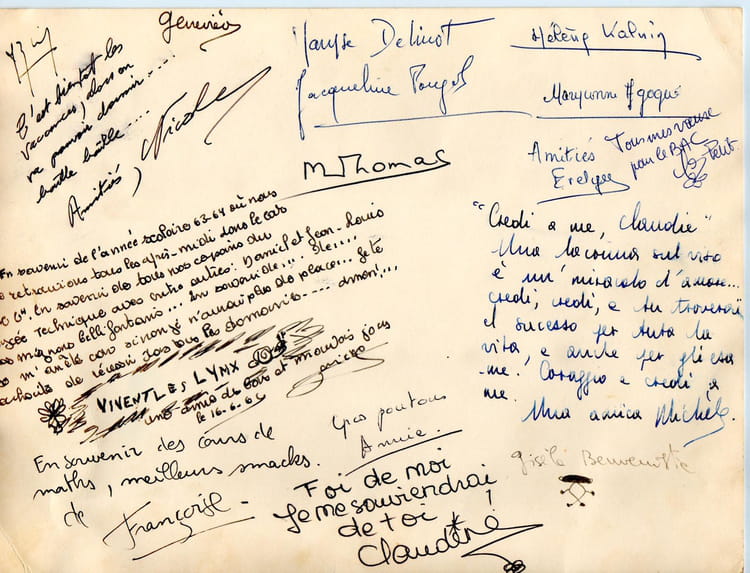 Geneviève
C'est bientôt les
vacances, alors on
va pouvoir dormir.....
baille baille....
Amitiés, Nicole
Maryse Delinot
Jacqueline
Hélène Kalnin
Maryvonne
M Thomas
Amitiés
Evelyne
Tous mes vœux
pour le BAC
Petit
En souvenir de l'année scolaire 63-64 où nous
retrouvions tous les après-midi dans le car
En souvenir de tous nos copains du
Technique avec entre autres: Daniel et Jean-Louis
mignons Bellifontains... En souvenir de...
m'arrête car sinon je n'aurai plus de place... Je te
souhaite de réussir dans tous les domaines---- amen!...
VIVENT LES LYNX
une amie des bons et mauvais jours
le 16.6.64
"Credi a me, Claudie"
Una lacrima sul viso
è un' miracolo d'amore...
credi, credi, e tu troverai
il sucesso per tutta la
vita, e anche per gli esa
me. Coraggio e credi a
me.
Una amica Michèle.
En souvenir des cours de
maths, meilleurs smacks.
de Françoise
Annie.
Gisèle Benveniste
Foi de moi
Je me souviendrai
de toi!
Claudine